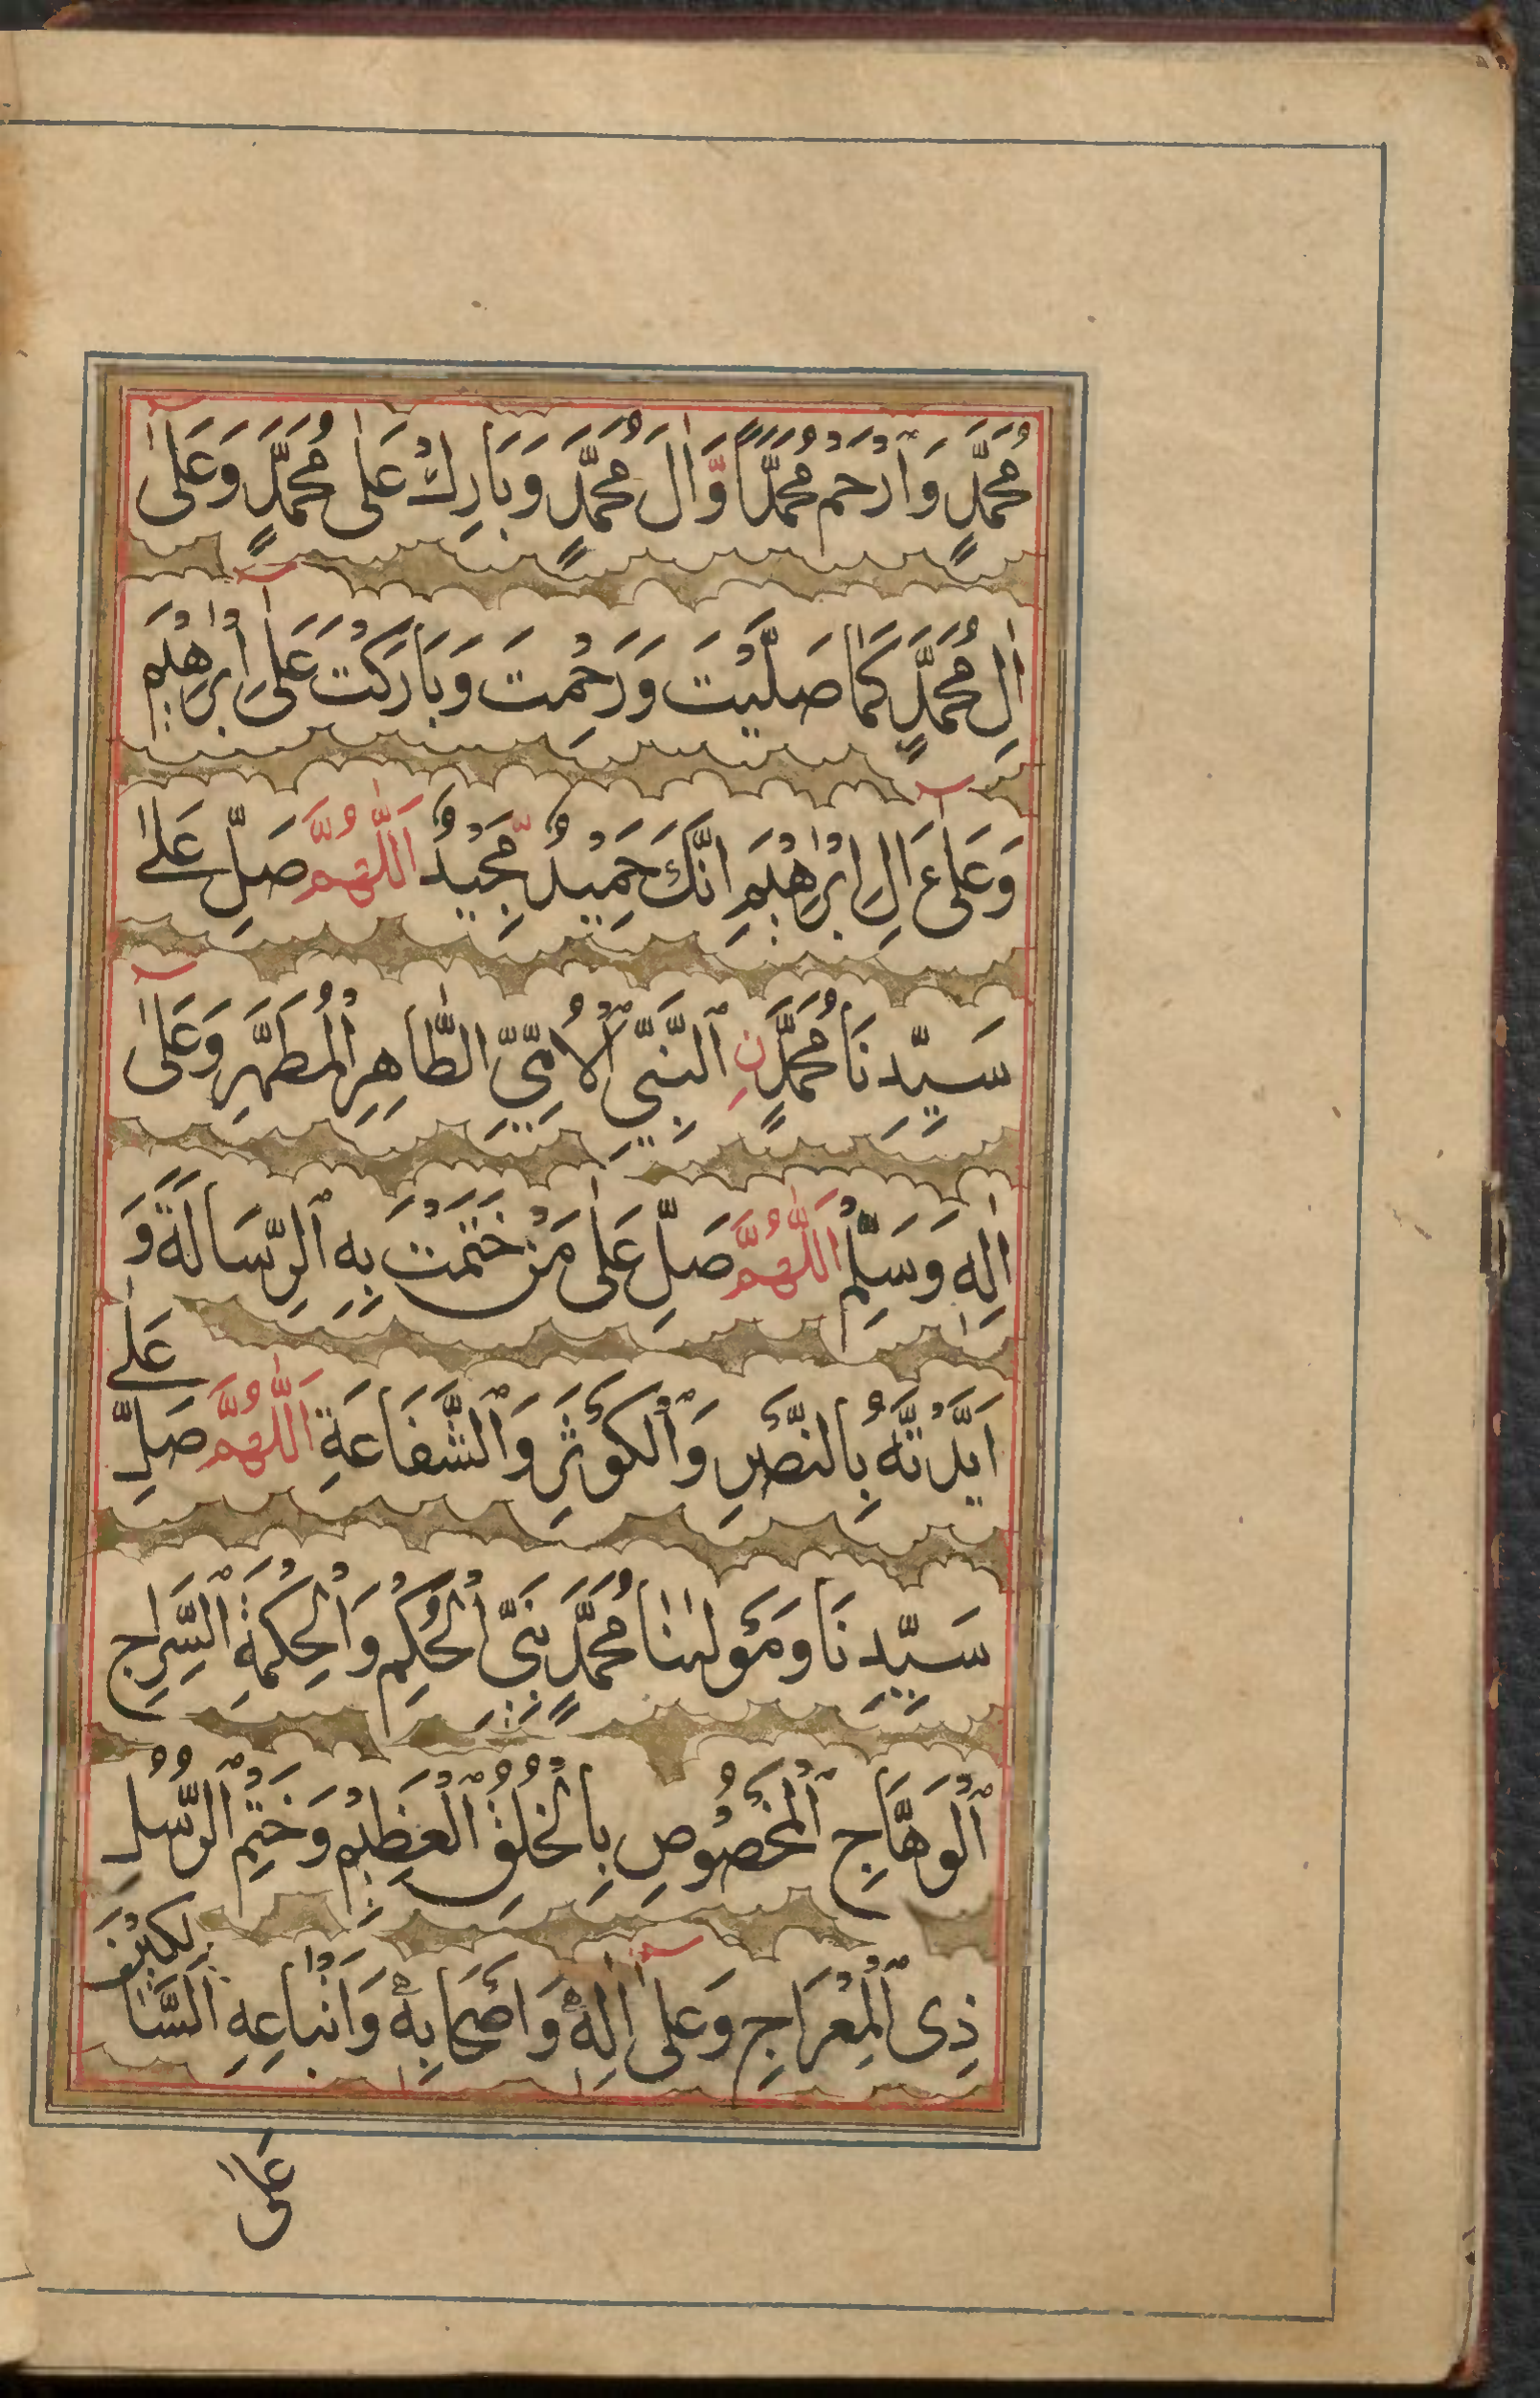 مُحَمَّدٍ وَٱرْحَمْ مُحَمَّدًا وَّاٰلَ مُحَمَّدٍ وَبَارِكْ عَلٰى مُحَمَّدٍ وَعَلٰٓى
اٰلِ مُحَمَّدٍ كَمَا صَلَّيْتَ وَرَحِمْتَ وَبَارَكْتَ عَلٰٓى اِبْرٰهِيْمَ
وَعَلٰٓى اٰلِ اِبْرٰهِيْمَ اِنَّكَ حَمِيْدٌ مَّجِيْدٌ اَللّٰهُمَّ صَلِّ عَلٰى
سَيِّدِنَا مُحَمَّدٍ نِ ٱلنَّبِيِّ ٱلْاُمِّيِّ الطَّاهِرِ الْمُطَهَّرِ وَعَلٰٓى
اٰلِهٖ وَسَلِّمْ اَللّٰهُمَّ صَلِّ عَلٰى مَنْ خَتَمْتَ بِهِ ٱلرِّسَالَةَ وَ
اَيَّدْتَّهُ بِالنَّصْرِ وَٱلْكَوْثَرِ وَٱلشَّفَاعَةِ اَللّٰهُمَّ صَلِّ عَلٰى
سَيِّدِنَا وَمَوْلٰىنَا مُحَمَّدٍ نَبِيِّ الْحُكْمِ وَالْحِكْمَةِ ٱلسِّرَاجِ
ٱلْوَهَّاجِ ٱلْمَخْصُوْصِ بِالْخُلُقِ ٱلْعَظِيْمِ وَخَتْمِ ٱلرُّسُلِ
ذِى ٱلْمِعْرَاجِ وَعَلٰٓى اٰلِهٖ وَاَصْحَابِهٖ وَاَتْبَاعِهِ السَّالِكِيْنَ
عَلٰى